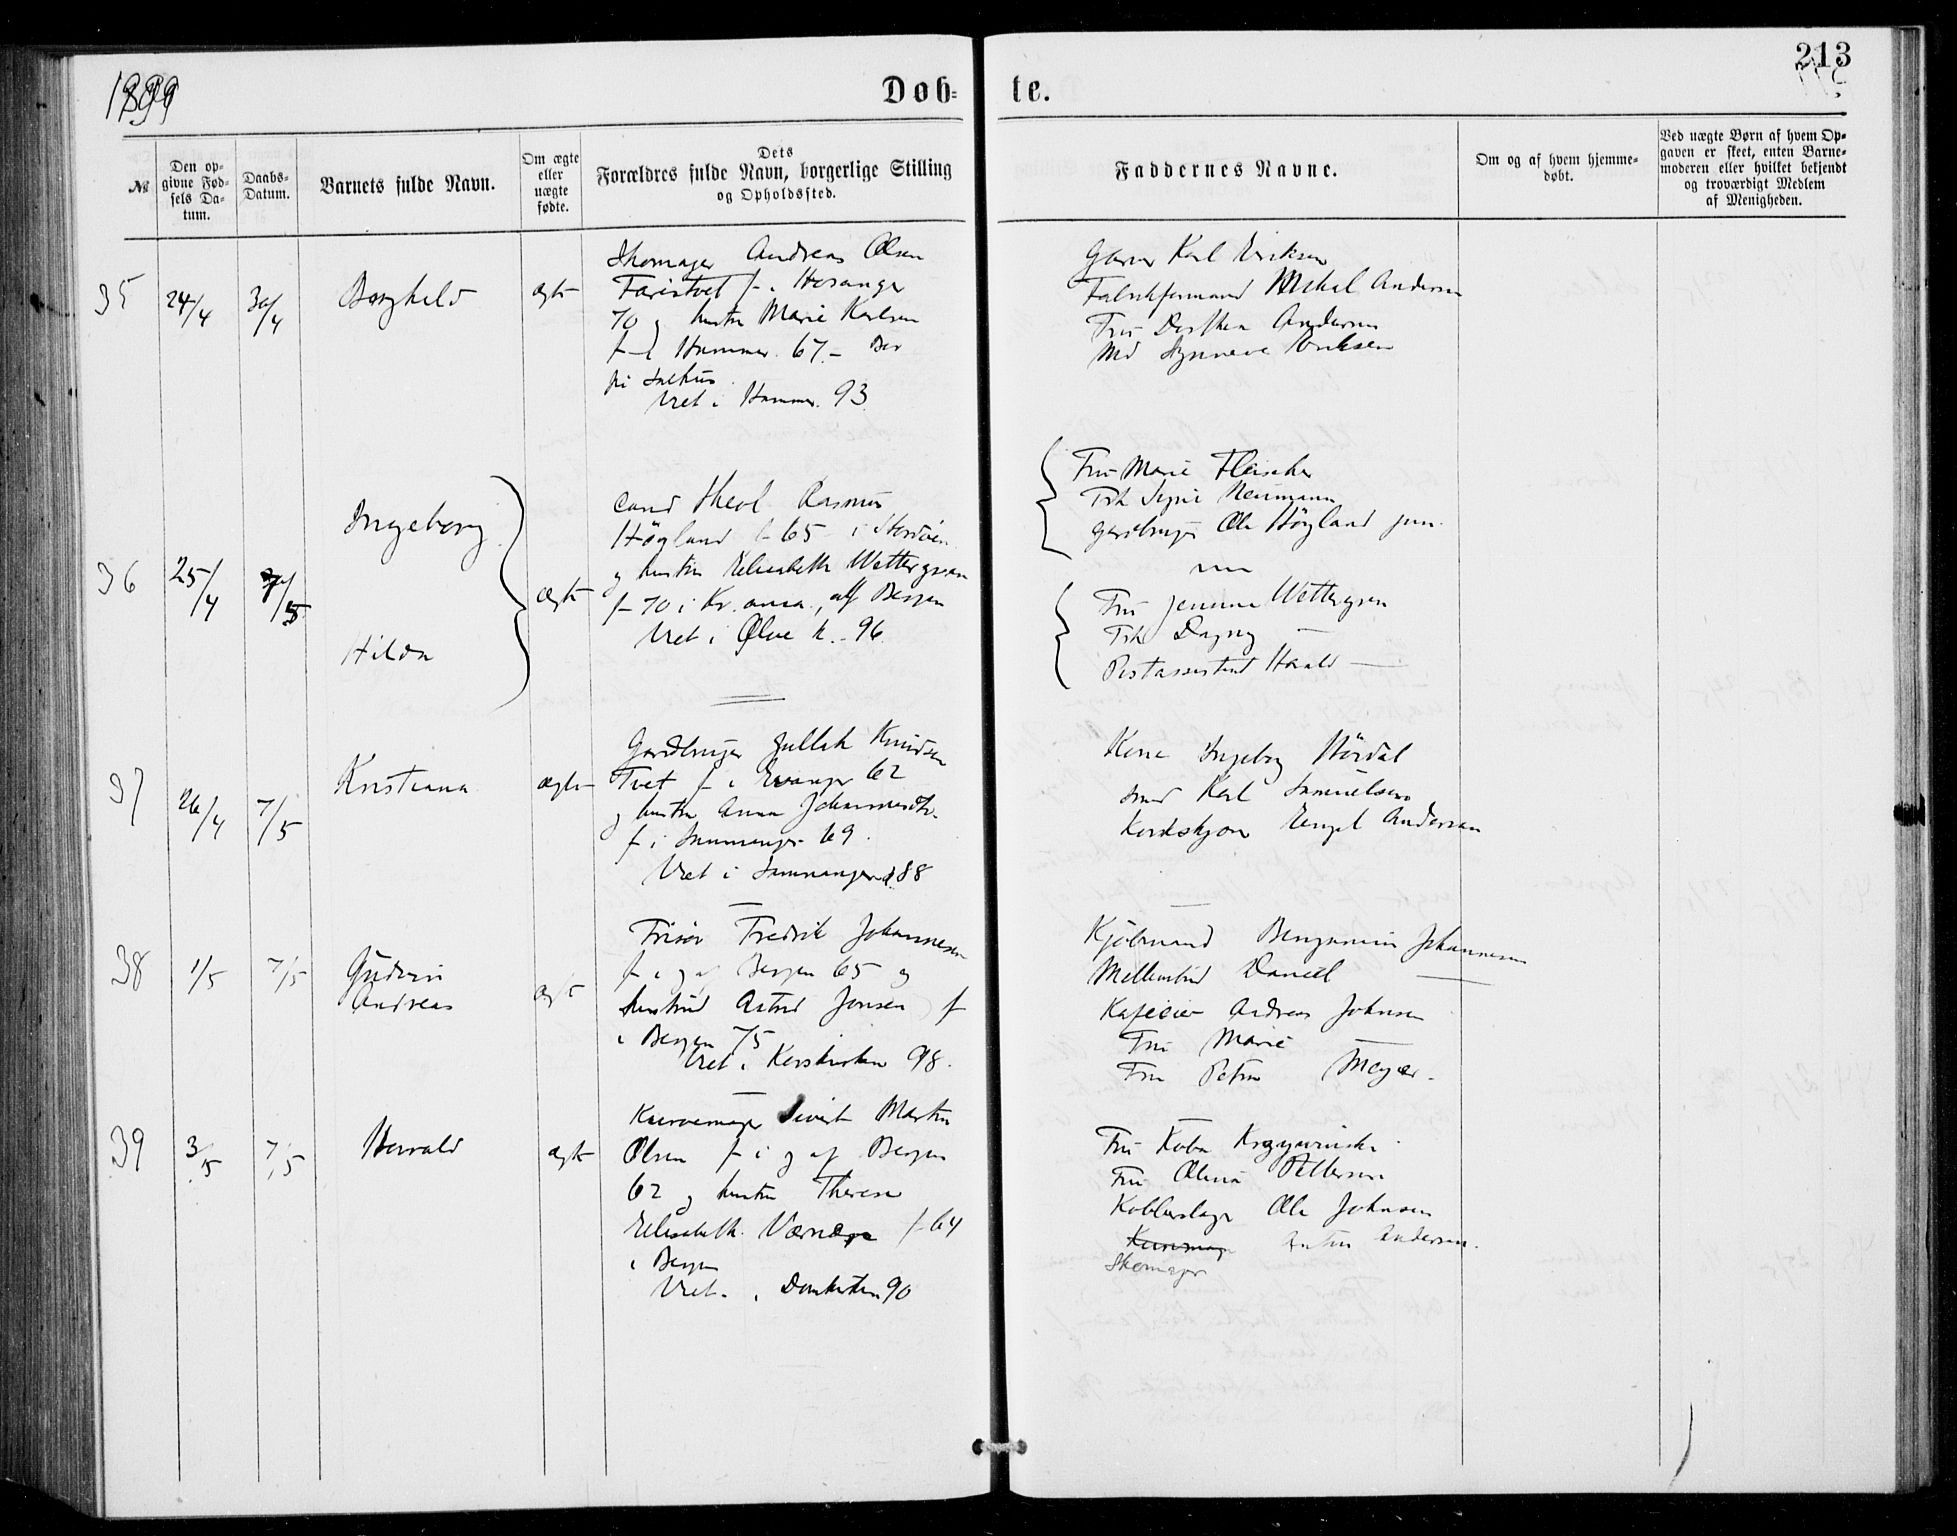 1899
Døb=
te.
213
№
Den op=
givne Fød=
sels Da=
tum.
Daabs=
Datum.
Barnets fulde Navn.
Om ægte
eller
uægte
fødte.
Dets
Forældres fulde Navn, borgerlige Stilling
og Opholdssted.
Faddernes Navne.
Om og af hvem hjemme=
døbt.
Ved uægte Børn af hvem Op=
gaven er skeet, enten Barne=
moderen eller hvilket bekjendt
og troværdigt Medlem
af Menigheden.
35
24/4
30/4
Borghild
ægte
Skomager Andreas Olsen
Farestvet f. i Hosanger
70 og hustru Marie Karlsen
f. i Hammer 67. - Bor
på Salhus.
Viet i Hammer 93.
Garver Karl Eriksen
Fabrikformand Mikal Andersen
Fru Dorthea Andersen
Md Synneve Eriksen
36
25/4
7/5
Ingeborg
Hilda
ægte
cand theol Rasmus
Høgland f. 65 i Stordøen
og hustru Elisabeth Wettergreen
f. 70 i Kr. ansa., alf Bergen
Viet i Ølve k. 96
Fru Marie Fleischer
Frk Signe Neumann
gårdbruger Ole Høgland jun.
Fru Jensine Wettergreen
Frk Dagny —
Postassistent Harald —
37
26/4
7/5
Kristiana
ægte
Gardbruger Gullak Knudsen
Tvet f. i Evanger 62
og hustru Anna Johannesdtr.
f. i Samnanger 69.
Viet i Samnanger 88
Kone Ingeborg Hørdal
smed Karl Samuelsen
Kudskjone Engel Andersen
38
1/5
7/5
Gudrun
Andreas
ægte
Frisør Fredrik Johannesen
f. i og af Bergen 65 og
hustru Astrid Jonsen f.
i Bergen 75
Viet i Korskirken 98.
Kjøbmand Benjamin Johannesen
Daniel —
Andreas Johnsen
Fru Marie —
Fru Petra Meyer.
39
3/5
7/5
Harald
ægte
Kurvemager Sivert Martin
Olsen f. i og af Bergen
62 og hustru Therese
Elisabeth Værnæs f. 64
i Bergen
Viet i Domkirken 90
Fru Olina Pettersen
Kobberslager Ole Johnsen
Kurvmag Anton Andersen.
Skomager